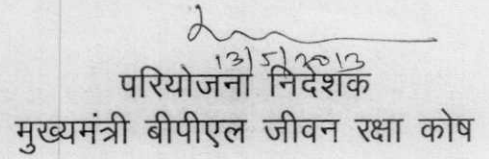 13/5/2013
परियोजना निदेशक
मुख्यमंत्री बीपीएल जीवन रक्षा कोष